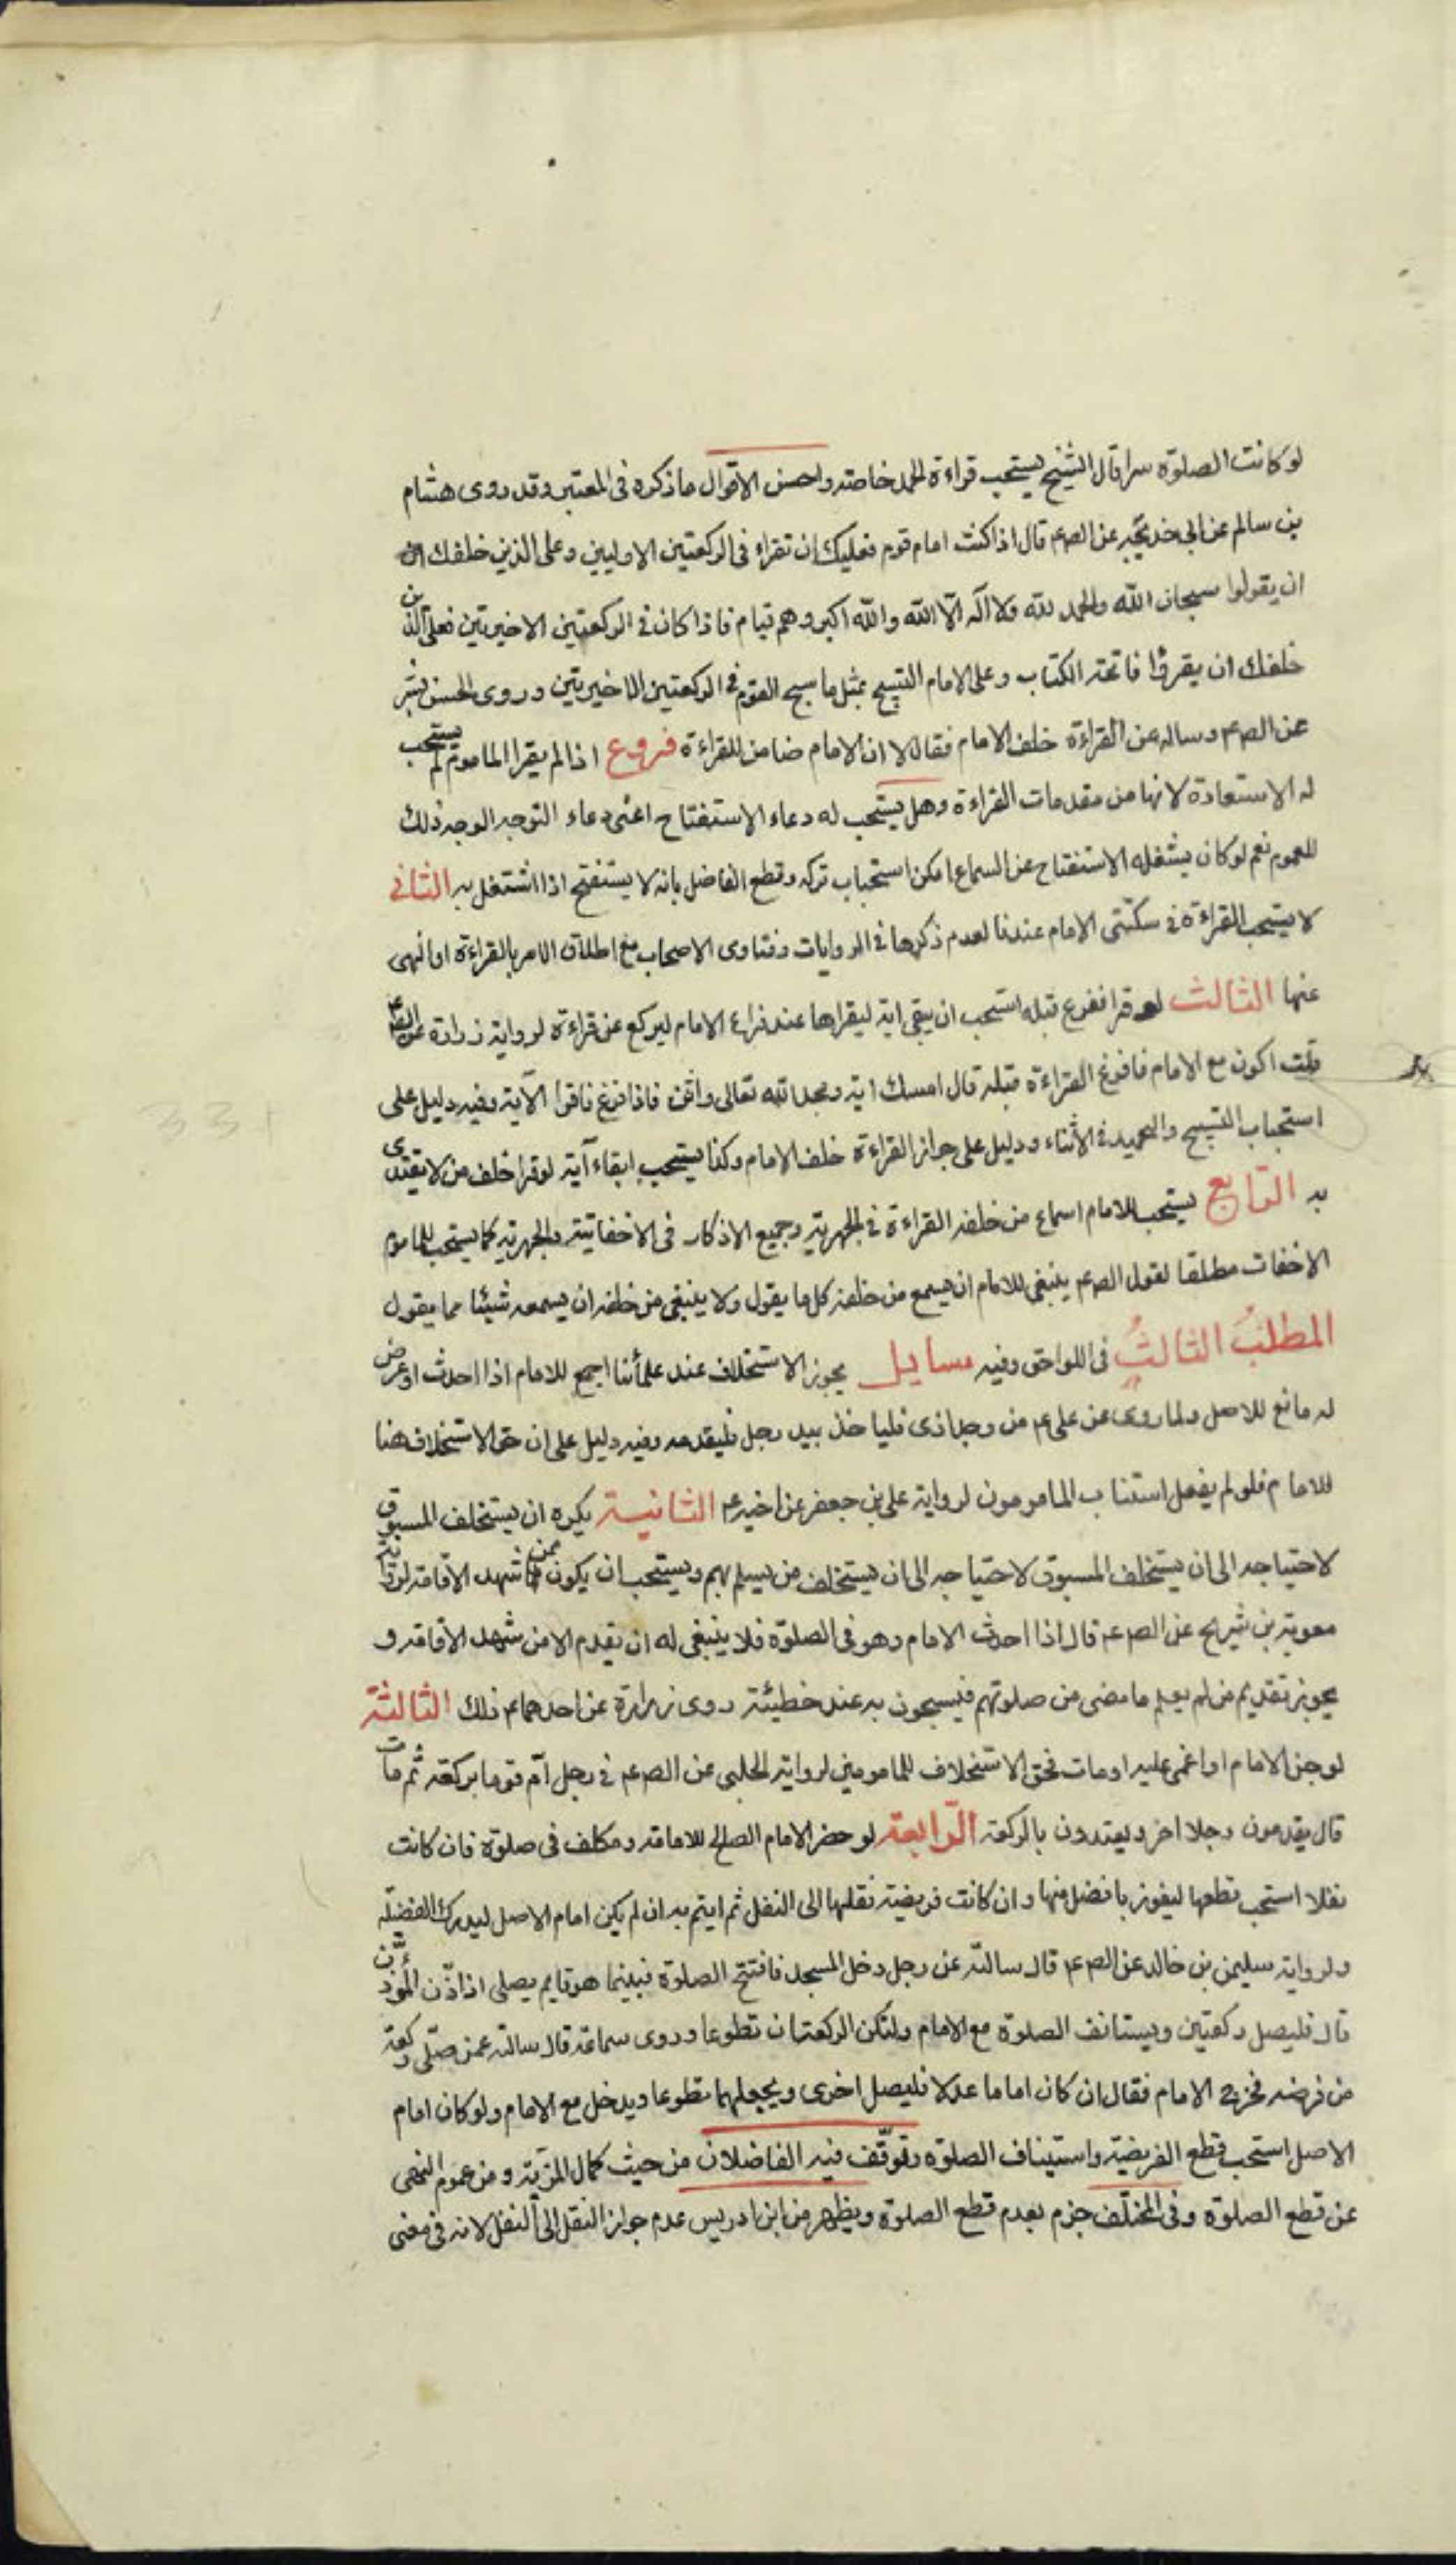 لو كانت الصلوة سرا قال الشيخ يستحب قراءة الحمد خاصة واحسن الاقوال ما ذكره فى المعتبر وقد روى هشام
بن سالم عن ابى خديجة عن الص ع م قال اذا كنت امام قوم فعليك ان تقراء فى الركعتين الاوليين وعلى الذين خلفك
ان يقولوا سبحان الله والحمد لله ولا اله الا الله والله اكبر وهم قيام فاذا كان فى الركعتين الاخيرتين فعلى الذين
خلفك ان يقرؤا فاتحة الكتاب وعلى الامام التسبيح بمثل ما سبح القوم فى الركعتين الاخيرتين وروى الحسن بشر
عن الص ع م وساله عن القراءة خلف الامام فقال لا ان الامام ضامن للقراءة فروع اذا لم يقرا الماموم لم يستحب
له الاستعاذة لانها من مقدمات القراءة وهل يستحب له دعاء الاستفتاح اعنى دعاء التوجه الوجه ذلك
للعموم نعم لو كان يشغله الاستفتاح عن السماع امكن استحباب تركه وقطع الفاضل بانه لا يستفتح اذا اشتغل به الثانى
لا يستحب القراءة فى سكتتى الامام عندنا لعدم ذكرها فى الروايات وفتاوى الاصحاب مع اطلاق الامر بالقراءة او النهى
عنها الثالث لو قرا ففرغ قبله استحب ان يبقى اية ليقراها عند فراغ الامام ليركع عن قراءة لرواية زرارة عن الص ع
قلت اكون مع الامام فافرغ القراءة قبله قال امسك اية ومجد الله تعالى واثن فاذا فرغ فاقرا الآية وفيه دليل على
استحباب التسبيح والتحميد فى الاثناء ودليل على جواز القراءة خلف الامام وكذا يستحب ابقاء آية لو قرا خلف من لا يقتدى
به الرابع يستحب للامام اسماع من خلفه القراءة فى الجهرية وجميع الاذكار فى الاخفاتية والجهرية كما يستحب للماموم
الاخفات مطلقا لقول الص ع م ينبغى للامام ان يسمع من خلفه كل ما يقول ولا ينبغى من خلفه ان يسمعه شيئا مما يقول
المطلب الثالث فى اللواحق وفيه مسايل يجوز الاستخلاف عند علمائنا اجمع للامام اذا احدث او عرض
له مانع للاصل ولما روى عن على ع م من وجد اذى فلياخذ بيد رجل فليقدمه وفيه دليل على ان حق الاستخلاف هنا
للامام فلو لم يفعل استناب المامومون لرواية على بن جعفر عن اخيه ع م الثانية يكره ان يستخلف المسبوق
لاحتياجه الى ان يستخلف المسبوق لاحتياجه الى ان يستخلف من يسلم بهم ويستحب ان يكون ممن شهد الاقامة لرواية
معوية بن شريح عن الص ع م قال اذا احدث الامام وهو فى الصلوة فلا ينبغى له ان يقدم الا من شهد الاقامة و
يجوز تقديم من لم يعلم ما مضى من صلوتهم فيسبحون به عند خطيئته روى زرارة عن احدهما ع م ذلك الثالثة
لو جن الامام او اغمى عليه او مات فحق الاستخلاف للمامومين لرواية الحلبى عن الص ع م فى رجل ام قوما بركعة ثم مات
قال يقدمون رجلا اخر ويعتدون بالركعة الرابعة لو حضر الامام الصالح للامامة ومكلف فى صلوة فان كانت
نفلا استحب قطعها ليفوز بافضل منها وان كانت فريضة نقلها الى النفل ثم ايتم به ان لم يكن امام الاصل ليدرك الفضيلة
ولرواية سليمن بن خالد عن الص ع م قال سالته عن رجل دخل المسجد فافتتح الصلوة فبينما هو قايم يصلى اذ اذن المؤذن
قال فليصل ركعتين ويستانف الصلوة مع الامام ولتكن الركعتان تطوعا وروى سماعة قال سالته عمن صلى ركعة
من فرضه فخرج الامام فقال ان كان اماما عدلا فليصل اخرى ويجعلهما تطوعا ويدخل مع الامام ولو كان امام
الاصل استحب قطع الفريضة واستيناف الصلوة وتوقف فيه الفاضلان من حيث كمال المزية ومن عموم النهى
عن قطع الصلوة وفى المختلف جزم بعدم قطع الصلوة ويظهر من ابن ادريس عدم جواز النقل الى النفل لانه فى معنى